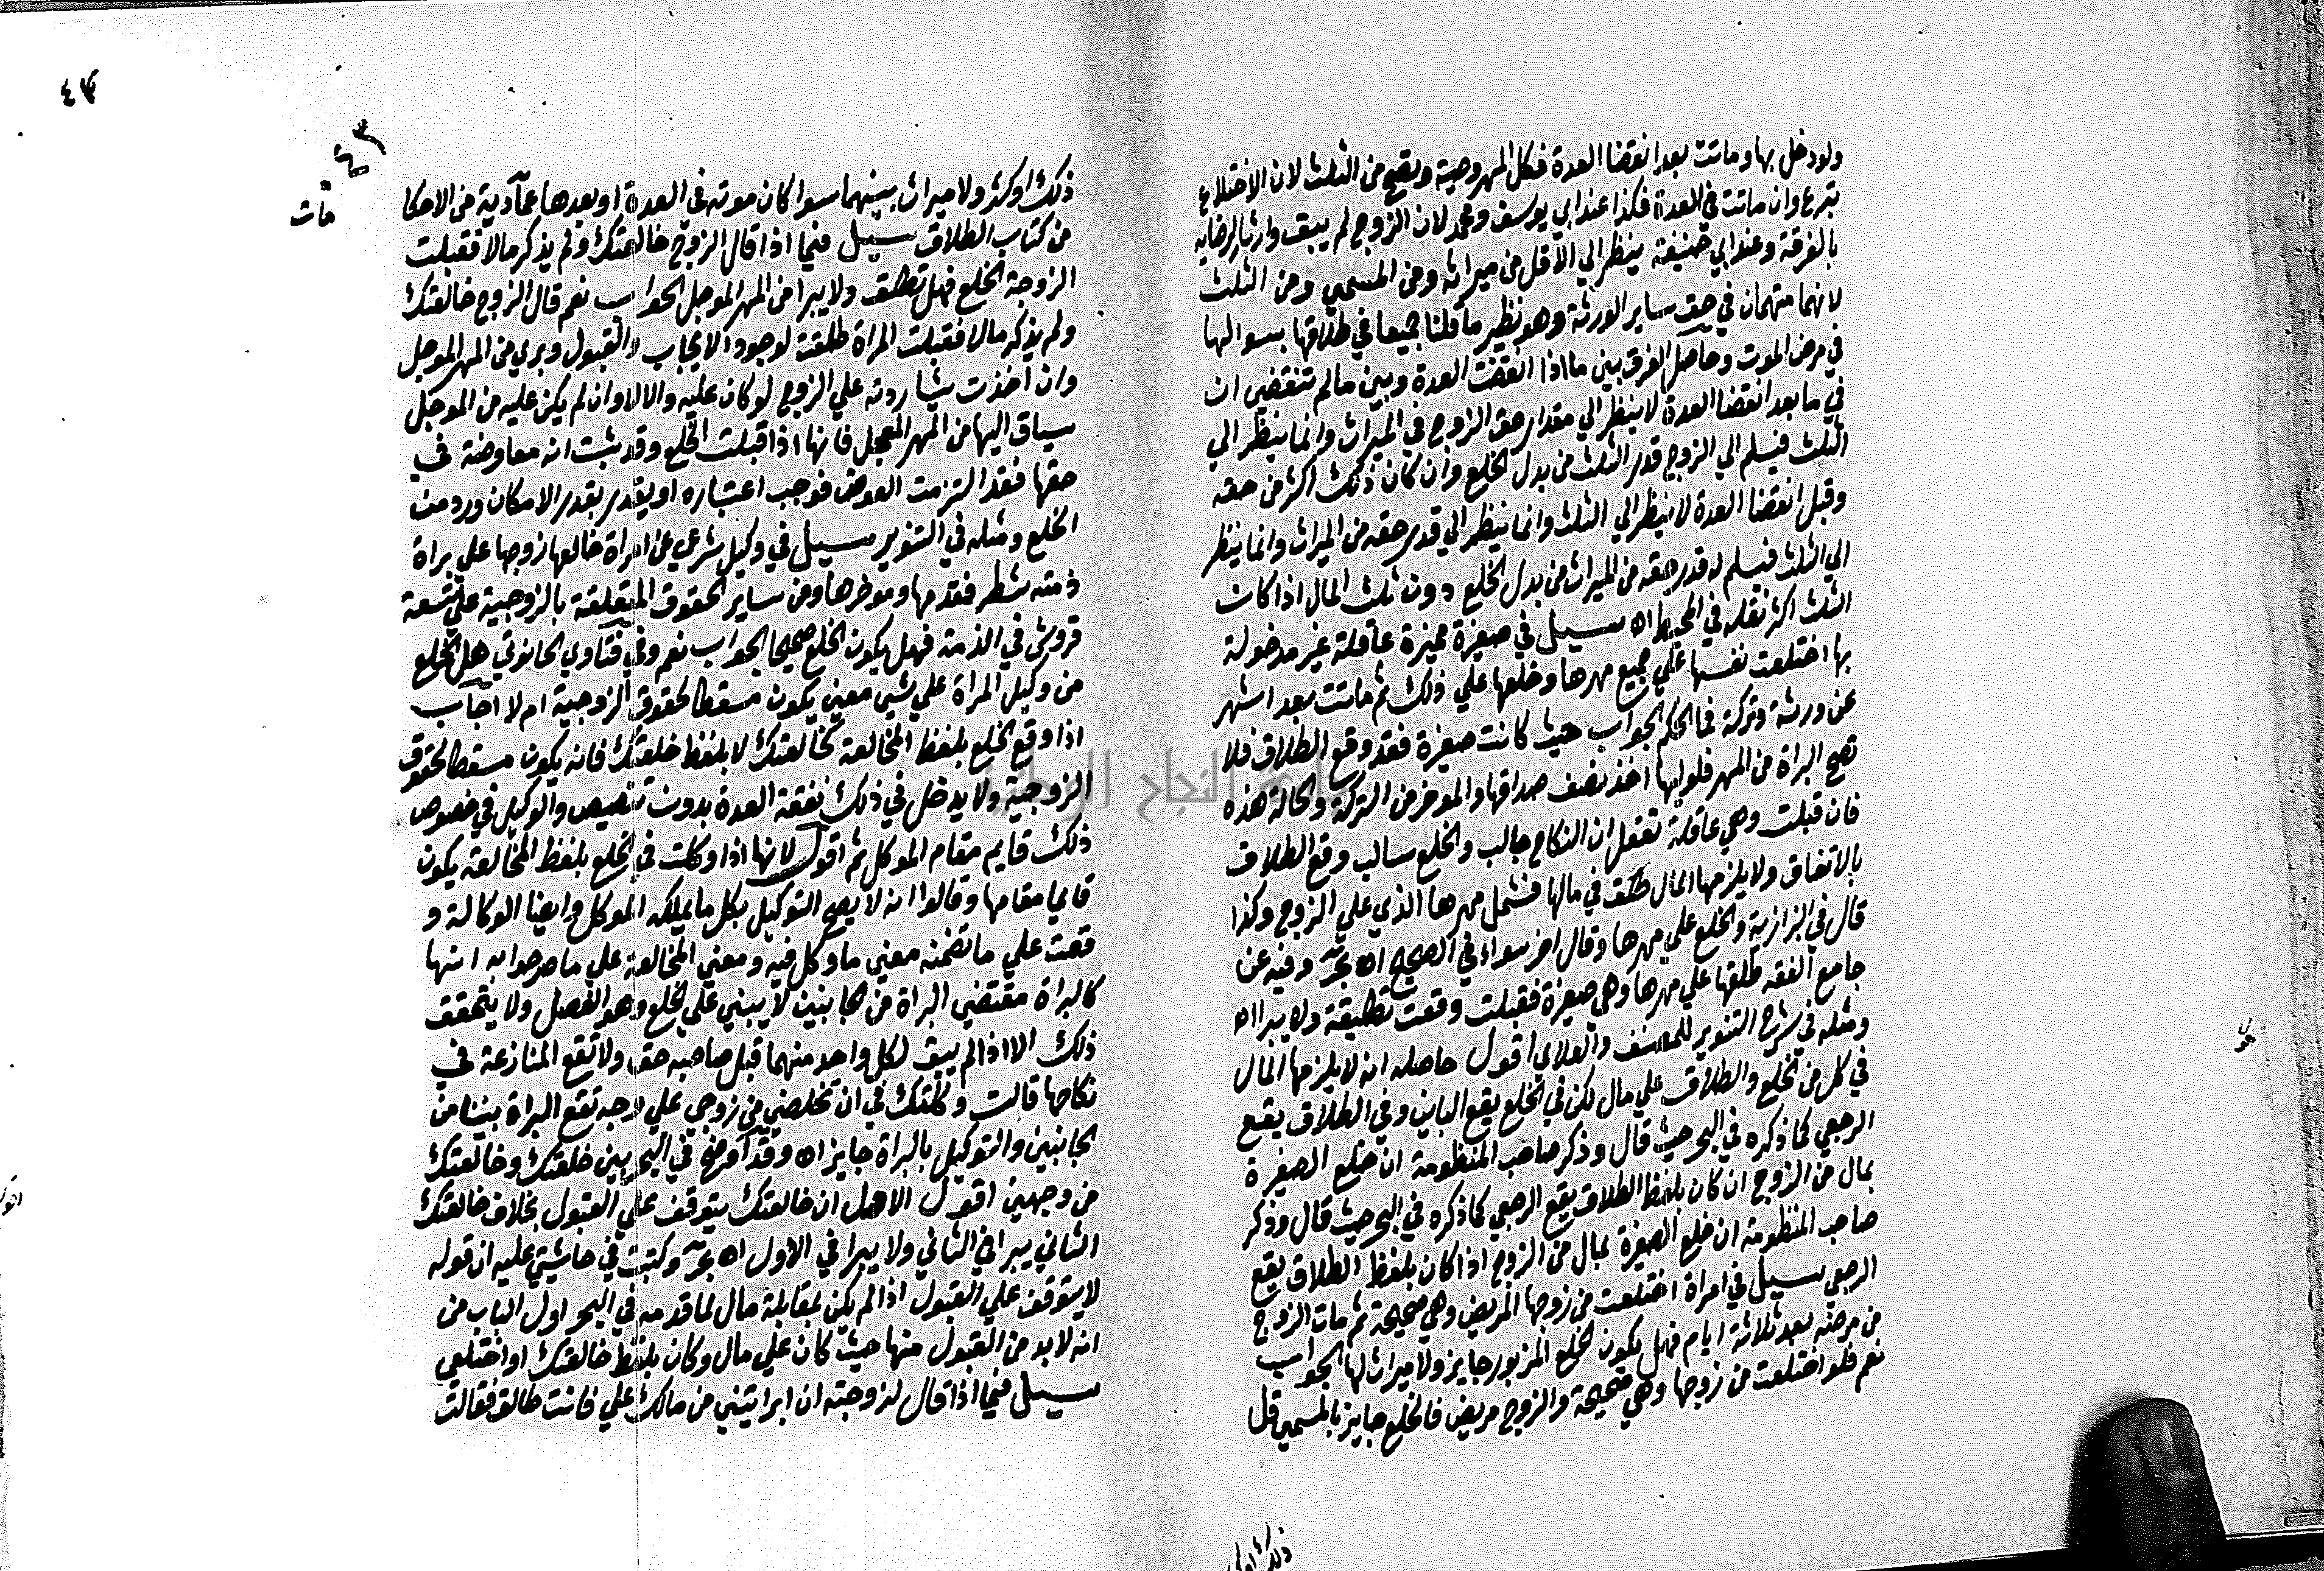 ولو دخل بها وماتت بعد انقضا العدة فكل المهر وصية ويصح من الثلث لان الاختلاع
تبرع وان ماتت في العدة فكذا عند ابي يوسف ومحمد لان الزوج لم يبق وارثا لرضايه
بالفرقة وعند ابي حنيفة ينظر الي الاقل من ميراثه ومن المسمي ومن الثلث
لانهما متهمان في حق ساير الورثة وهو نظير ما قلنا جميعا في طلاقها بسوالها
في مرض الموت وحاصل الفرق بين ما اذا انقضت العدة وبين مالم تنقضي ان
في ما بعد انقضا العدة لا ينظر الي مقدار حق الزوج في الميراث وانما ينظر الي
الثلث فيسلم الي الزوج قدر الثلث من بدل الخلع وان كان ذلك اكثر من حقه
وقبل انقضا العدة لا ينظر الي الثلث وانما ينظر الي قدر حقه من الميراث وانما ينظر
الي الثلث فيسلم له قدر حقه من الميراث من بدل الخلع دون ثلث المال اذا كان
الثلث اكثر نقله في المحيط اه سيل في صغيرة مميزة عاقلة غير مدخولة
بها اختلعت نفسها علي جميع مهرها وخلعها علي ذلك ثم ماتت بعد اشهر
عن ورثة وتركة فما الحكم الجواب حيث كانت صغيرة فقد وقع الطلاق فلا
تصح البراة من المهر فلوليها اخذ نصف صداقها والموخر من التركة والحالة هذه
فان قبلت وهي عاقلة تعقل ان النكاح جالب والخلع سالب وقع الطلاق
بالاتفاق ولا يلزمها المال طلق في مالها فشمل مهرها الذي علي الزوج وكذا
قال في البزازية والخلع علي مهرها وقال اخر سواء في الصحيح اه بحر وفيه عن
جامع الفقه طلقها علي مهرها وهي صغيرة فقبلت وقعت تطليقة ولا يبرا اه
ومثله في شرح التنوير للمصنف والعلاي اقول حاصله انه لا يلزمها المال
في كل من الخلع والطلاق علي مال لكن في الخلع يقع الباين وفي الطلاق يقع
الرجعي كما ذكره في البحر حيث قال وذكر صاحب المنظومة ان خلع الصغيرة
بمال من الزوج ان كان بلفظ الطلاق يقع الرجعي كما ذكره في البحر حيث قال وذكر
صاحب المنظومة ان خلع الصغيرة بمال من الزوج اذا كان بلفظ الطلاق يقع
الرجعي سيل في امراة اختلعت من زوجها المريض وهي صحيحة ثم مات الزوج
من مرضه بعد ثلاثة ايام فهل يكون الخلع المزبور جايز ولا ميراث لها الجواب
نعم فلو اختلعت من زوجها وهي صحيحة والزوج مريض فالخلع جايز بالمسمي قل
ذلك او كثر
ذلك او كثر ولا ميراث بينهما سوا كان موته في العدة او بعدها عمادية من الاحكا
مات
من كتاب الطلاق سيل فيما اذا قال الزوج خالعتك ولم يذكر مالا فقبلت
الزوجة الخلع فهل تطلق ولا يبرا من المهر الموجل الجواب نعم قال الزوج خالعتك
ولم يذكر مالا فقبلت المراة طلقت لوجود الايجاب والقبول وبري من المهر الموجل
وان اخذت شيا ردته علي الزوج لو كان عليه والا لا وان لم يكن عليه من الموجل
سياق اليها من المهر المعجل فانها اذا قبلت الخلع وقد ثبت انه معاوضة في
حقها فقد التزمت العوض فوجب اعتباره او يقدر بقدر الامكان ورد من
الخلع ومثله في التنوير سيل في وكيل شرعي عن امراة خالعها زوجها علي براة
ذمته شطر فقدمها وموخرها ومن ساير الحقوق المتعلقة بالزوجية علي تسعة
قروش في الذمة فهل يكون الخلع صحيحا الجواب نعم وفي فتاوي الحانوتي هل الخلع
من وكيل المراة علي شيي معين يكون مسقطا لحقوق الزوجية ام لا اجاب
اذا وقع الخلع بلفظ المخالعة كخالعتك لا بلفظ خلعتك فانه يكون مسقطا لحقوق
الزوجية ولا يدخل في ذلك نفقة العدة بدون تنصيص والوكيل في خصوص
ذلك قايم مقام الموكل ثم اقول لانها اذا وكلت في الخلع بلفظ المخالعة يكون
قايما مقامها وقالوا انه لا يصح التوكيل بكل ما يملكه الموكل وايضا الوكالة و
قعت علي ما تضمنه معني ما وكل فيه ومعني المخالعة علي ما صرحوا به انها
كالبراة مقتضي البراة من الجانبين لا يبني علي الخلع وهو الفصل ولا يتحقق
ذلك الا اذا لم يبق لكل واحد منهما قبل صاحبه حق ولا تقع المنازعة في
نكاحها قالت وكلتك في ان تخلصني من زوجي علي وجه تقع البراة بيننا من
الجانبين والتوكيل بالبراة جايز اه وقد افرق في البحر بين خلعتك وخالعتك
من وجهين اقول الاول ان خالعتك يتوقف علي القبول بخلاف خالعتك
الثاني يبرا في الثاني ولا يبرا في الاول اه بحر وكتبت في حاشيتي عليه ان قوله
لا يتوقف علي القبول اذا لم يكن بمقابلة مال لما قدمه في البحر اول الباب من
انه لا بد من القبول منها حيث كان علي مال وكان بلفظ خالعتك او اختلعي
سيل فيما اذا قال لزوجته ان ابراتيني من مالك علي فانت طالق فقالت
جامعة النجاح الوطنية